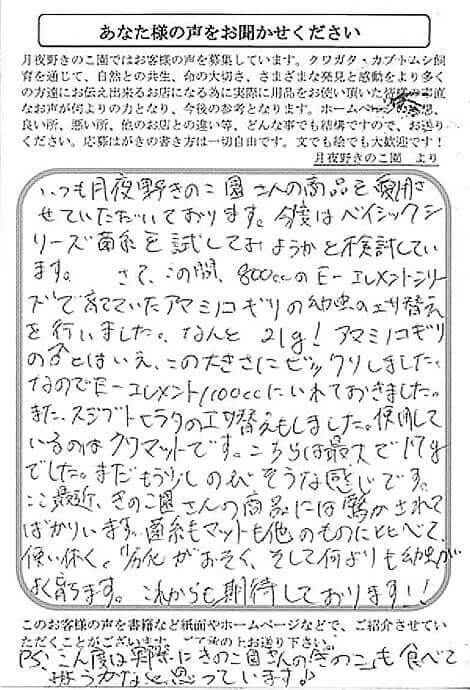 あなた様の声をお聞かせください
月夜野きのこ園ではお客様の声を募集しています。クワガタ・カブトムシ飼
育を通じて、自然との共生、命の大切さ、さまざまな発見と感動をより多く
の方達にお伝え出来るお店になる為に実際に用品をお使い頂いた皆様の率直
なお声が何よりの力となり、今後の参考となります。ホームページの感想、
良い所、悪い所、他のお店との違い等、どんな事でも結構ですので、お送り
ください。応募はがきの書き方は一切自由です。文でも絵でも大歓迎です！
月夜野きのこ園　より
いつも月夜野きのこ園さんの商品を愛用さ
せていただいております。今度はベイシックシ
リーズ菌糸を試してみようかと検討してい
ます。　さて、この間、800ccのE-エレメントシリー
ズで育てていたアマミノコギリの幼虫のエサ替え
を行いました。なんと21g！アマミノコギリ
の♂とはいえ、この大きさにビックリしました。
なのでE-エレメント1100ccにいれておきました。
また、スジブトヒラタのエサ替えもしました。使用して
いるのはクワマットです。こちらは最大で17g
でした。まだもう少しのびそうな感じです。
ここ最近、きのこ園さんの商品には驚かされて
ばかりいます。菌糸もマットも他のものとくらべて、
使い休く、劣化がおそく、そして何よりも幼虫が
よく育ちます。これからも期待しております！！
このお客様の声を書籍など紙面やホームページなどで、ご紹介させてい
ただくことがございます。ご了承の上お送り下さい。
PS、こん度は実際にきのこ園さんの「きのこ」も食べて
みようかなと思っています♪